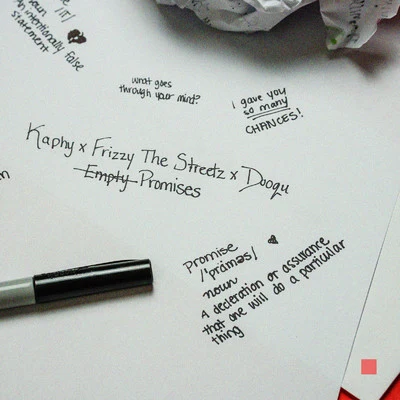 /lī/
noun
An intentionally false
statement
what goes
through your mind?
i gave you
so many
CHANCES!
Kaphy x Frizzy The Streetz x Dooqu
Empty Promises
Promise
/'präməs/
noun
A decleration or assurance
that one will do a particular
thing